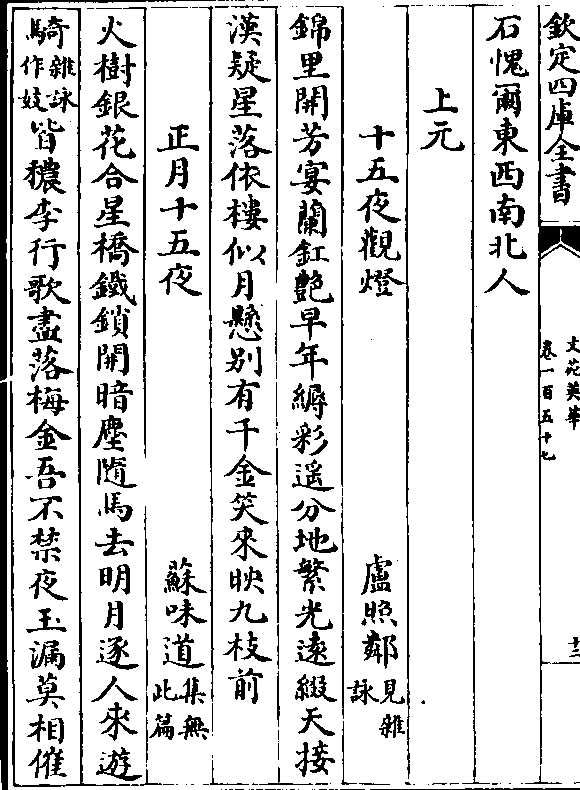 欽定四庫全書
文苑英華
卷一百五十七
十二
石愧爾東西南北人
上元
十五夜觀燈 盧照鄰見雜詠
錦里開芳宴蘭釭艷早年縟彩遥分地繁光遠綴天接
漢疑星落依樓似月懸别有千金笑來映九枝前
正月十五夜 蘇味道集無此篇
火樹銀花合星橋鐵鎖開暗塵隨馬去明月逐人來遊
騎雜詠作妓皆穠李行歌盡落梅金吾不禁夜玉漏莫相催